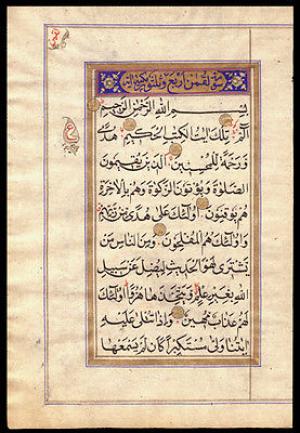 سورة لقمن اربع وثلثون
بِسْمِ اللهِ الرَّحْمٰنِ الرَّحِيمِ
الٓمٓ تِلْكَ اٰيَاتُ الْكِتَابِ الْحَكِيمِ هُدًى
وَرَحْمَةً لِلْمُحْسِنِينَ الَّذِينَ يُقِيمُونَ
الصَّلٰوةَ وَيُؤْتُونَ الزَّكٰوةَ وَهُمْ بِالْاٰخِرَةِ
هُمْ يُوقِنُونَ اُولٰئِكَ عَلٰى هُدًى مِنْ رَبِّهِمْ
وَاُولٰئِكَ هُمُ الْمُفْلِحُونَ وَمِنَ النَّاسِ مَنْ
يَشْتَرِى لَهْوَ الْحَدِيثِ لِيُضِلَّ عَنْ سَبِيلِ
اللهِ بِغَيْرِ عِلْمٍ وَيَتَّخِذَهَا هُزُوًا اُولٰئِكَ
لَهُمْ عَذَابٌ مُهِينٌ وَاِذَا تُتْلٰى عَلَيْهِ
اٰيَاتُنَا وَلّٰى مُسْتَكْبِرًا كَاَنْ لَمْ يَسْمَعْهَا